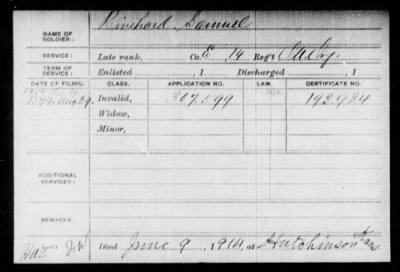 NAME OF SOLDIER: Rinehard, Samuel
SERVICE: Late rank, Co. E, 14 Reg't
TERM OF SERVICE: Enlisted , 1 Discharged , 1
DATE OF FILING. CLASS. APPLICATION NO. LAW. CERTIFICATE NO.
1879 Aug 29. Invalid, 307599 192984
Widow,
Minor,
ADDITIONAL SERVICES:
REMARKS:
Died June 9, 1914, at Hutchinson Kans